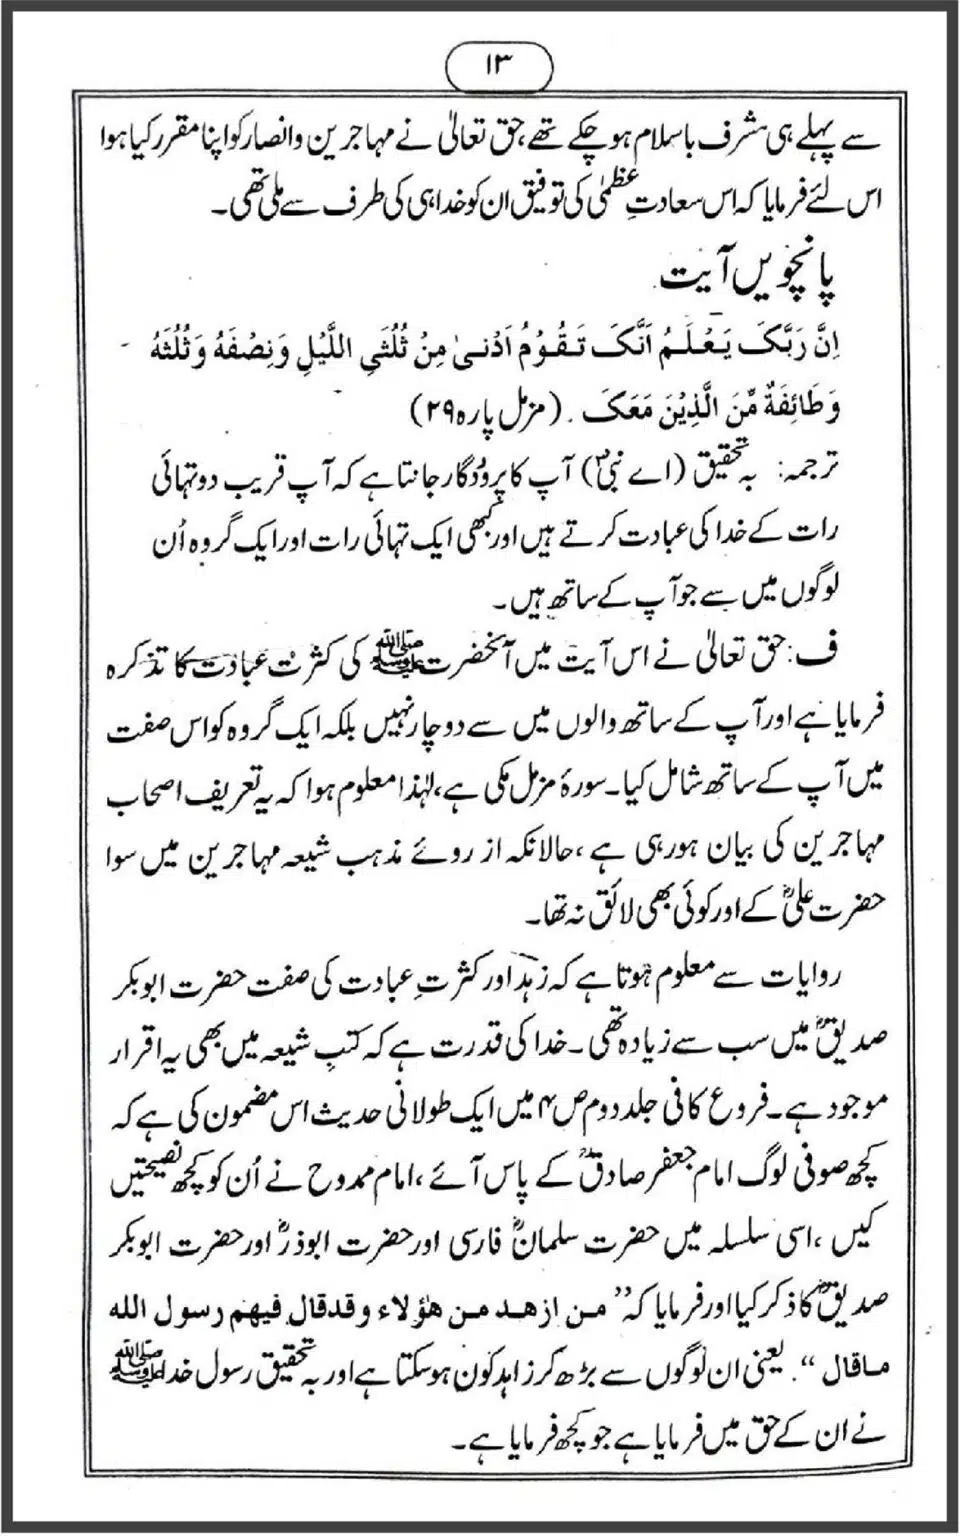 ۱۳
سے پہلے ہی مشرف باسلام ہو چکے تھے، حق تعالیٰ نے مہاجرین و انصار کو اپنا مقرر کیا ہوا
اس لئے فرمایا کہ اس سعادتِ عظمیٰ کی توفیق ان کو خدا ہی کی طرف سے ملی تھی۔
پانچویں آیت
اِنَّ رَبَّکَ یَعْلَمُ اَنَّکَ تَقُوْمُ اَدْنیٰ مِنْ ثُلُثَیِ اللَّیْلِ وَنِصْفَهُ وَثُلُثَهُ
وَطَائِفَةٌ مِّنَ الَّذِیْنَ مَعَکَ . (مزمل پارہ ۲۹)
ترجمہ: بہ تحقیق (اے نبیؐ) آپ کا پروردگار جانتا ہے کہ آپ قریب دو تہائی
رات کے خدا کی عبادت کرتے ہیں اور کبھی ایک تہائی رات اور ایک گروہ اُن
لوگوں میں سے جو آپ کے ساتھ ہیں۔
ف: حق تعالیٰ نے اس آیت میں آنحضرت ﷺ کی کثرت عبادت کا تذکرہ
فرمایا ہے اور آپ کے ساتھ والوں میں سے دو چار نہیں بلکہ ایک گروہ کو اس صفت
میں آپ کے ساتھ شامل کیا۔ سورۂ مزمل مکی ہے، لہٰذا معلوم ہوا کہ یہ تعریف اصحاب
مہاجرین کی بیان ہو رہی ہے، حالانکہ از روئے مذہب شیعہ مہاجرین میں سوا
حضرت علیؓ کے اور کوئی بھی لائق نہ تھا۔
روایات سے معلوم ہوتا ہے کہ زہد اور کثرتِ عبادت کی صفت حضرت ابوبکر
صدیقؓ میں سب سے زیادہ تھی۔ خدا کی قدرت ہے کہ کتبِ شیعہ میں بھی یہ اقرار
موجود ہے۔ فروع کافی جلد دوم ص۴ میں ایک طولانی حدیث اس مضمون کی ہے کہ
کچھ صوفی لوگ امام جعفر صادقؒ کے پاس آئے، امام ممدوح نے اُن کو کچھ نصیحتیں
کیں، اسی سلسلہ میں حضرت سلمانؓ فارسی اور حضرت ابوذرؓ اور حضرت ابوبکر
صدیقؓ کا ذکر کیا اور فرمایا کہ ” من ازهد من هٰؤلاء وقد قال فيهم رسول الله
ماقال “. یعنی ان لوگوں سے بڑھ کر زاہد کون ہوسکتا ہے اور بہ تحقیق رسول خدا ﷺ
نے ان کے حق میں فرمایا ہے جو کچھ فرمایا ہے۔